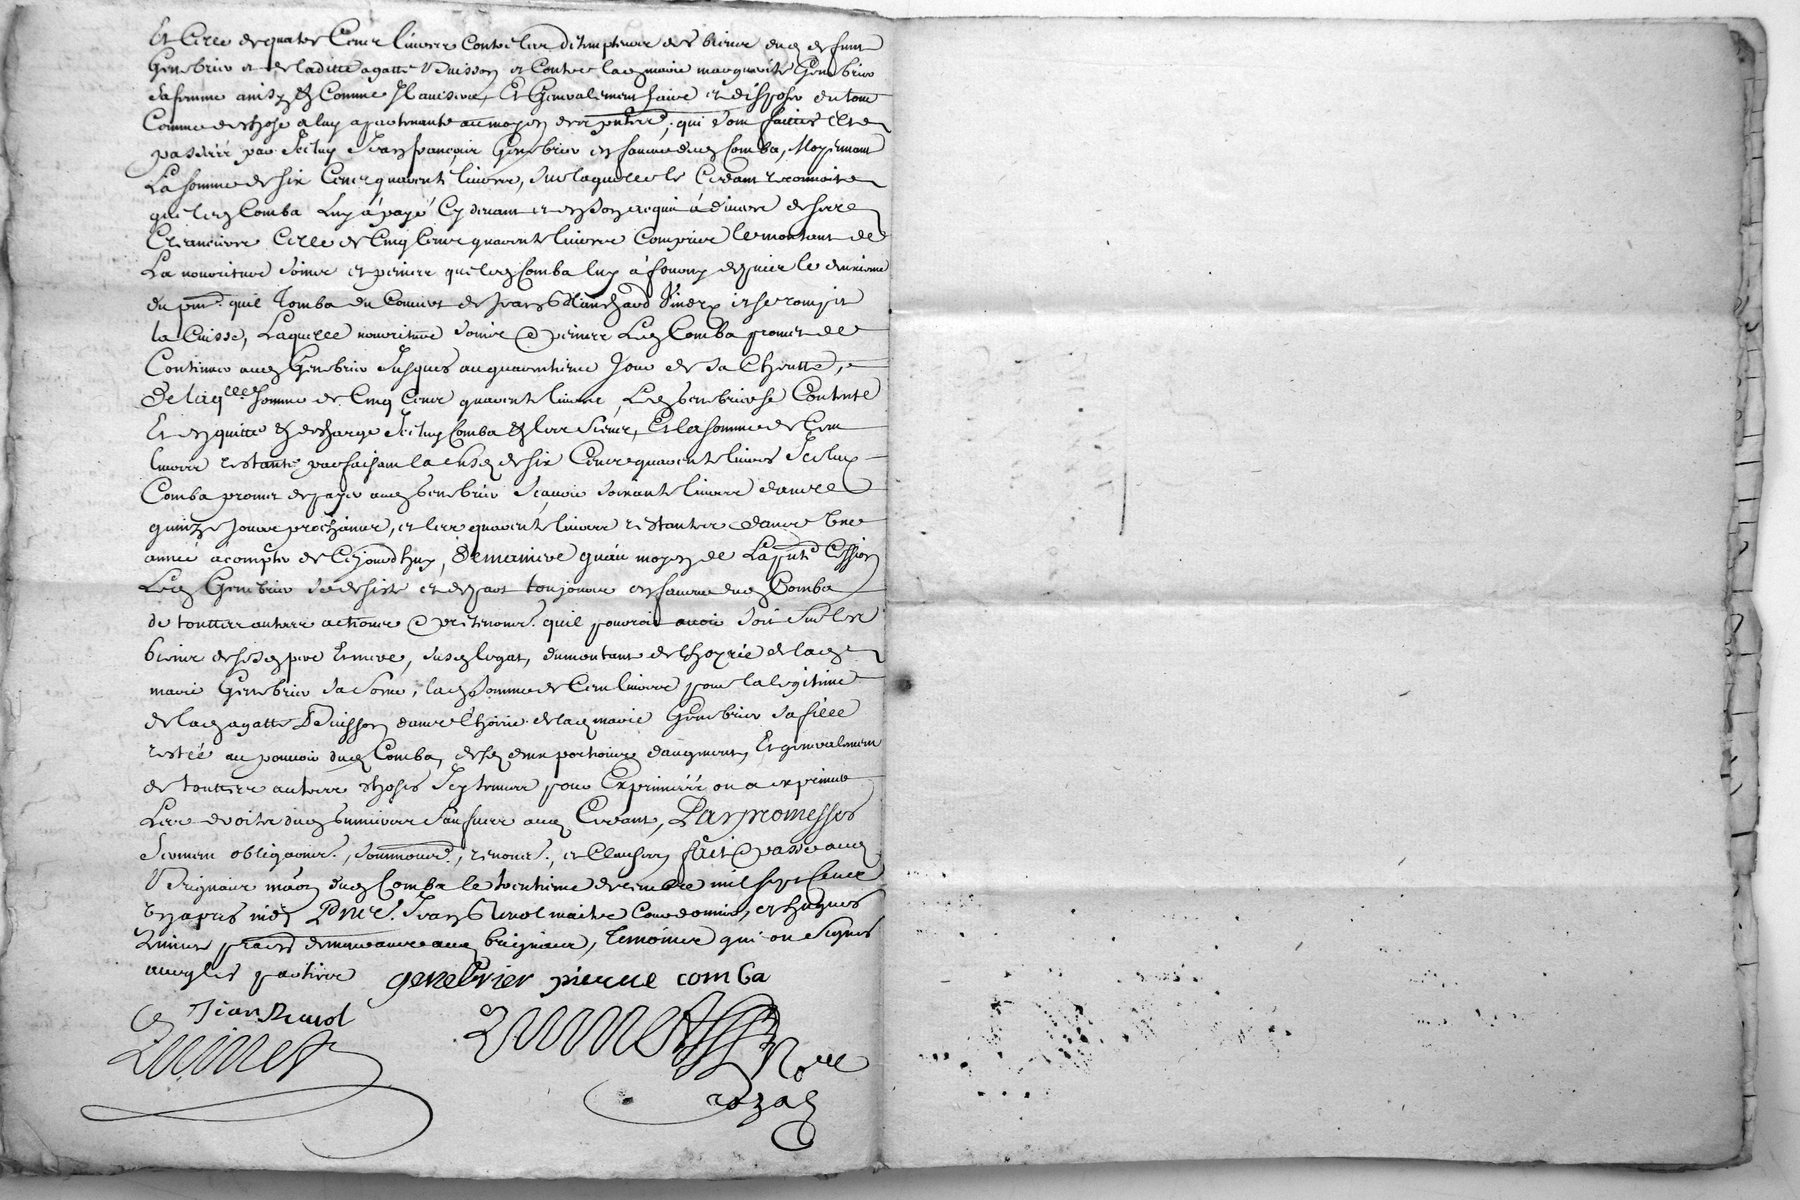 Et Celle de quatre Cens livres Contre les détempteurs des biens dud defunt
Genebrier et de laditte agatte et Contre lad marie margueritte Genebrier
sa femme ainsy Comme Il avisera, Et Generalement faire et disposer du tout
Comme de chose a luy apartenante au moyen des qui sont faittes et
passées par Icelluy Jean françois Genebrier en faveur dud Comba, Moyennant
La somme de six Cens quarente livres, sur laquelle le Cedant reconnoit
que led Comba Luy a payé Cy devant et en son aquit a divers de ses
Créanciers Celle de Cinq Cens quarente livres Compris le montant de
La nourriture soins et peines que led Comba luy a fourny depuis le deuxieme
du pnt. quil Tomba au Couvert de Jean Blanchard et se rompit
la Cuisse, Laquelle nourriture soins & peines Led Comba promet de
Continuer aud Genebrier Jusques au quarentieme Jour de sa Cheutte,
De laqlle somme de Cinq Cens quarente livres, Led Genebrier se Contente
Et en quitte & decharge Icelluy Comba & les siens, Et la somme de Cent
livres restante parfaisant la susd de six Cens quarente livres Icelluy
Comba promet de payer aud Genebrier scavoir soixante livres dans
quinze Jours prochains, et les quarente livres restantes dans une
année a compter de Cejourdhuy, De maniere quau moyen de La pnte Cession
Led Genebrier se desiste et depart toujours en faveur dud Comba
de touttes autres actions & pretenions. quil pourroit avoir soit sur les
biens de sesd pere Et mere, susd legat, du montant de lhoyrie de lad
marie Genebrier sa soeur, lad somme de Cent livres pour la legitime
de lad agatte dans lhoirie de lad marie Genebrier sa fille
restée au pouvoir dud Comba, desd deux portions daugment, Et generalement
de touttes autres choses Icy tenues pour Exprimées ou a exprimer
Les droits dud saufvés aud Cedant, Par promesses
serment obligaons., renons., et Clauses, fait & passé aud
Brignais maison dud Comba le trentieme decembre mil sept Cens
apres midy Pnts. Jean maitre Cordonnier, et hugues
praticien demeurants aud brignais, Temoins qui ont signés
avec les parties genebrier pierre comba
Jean